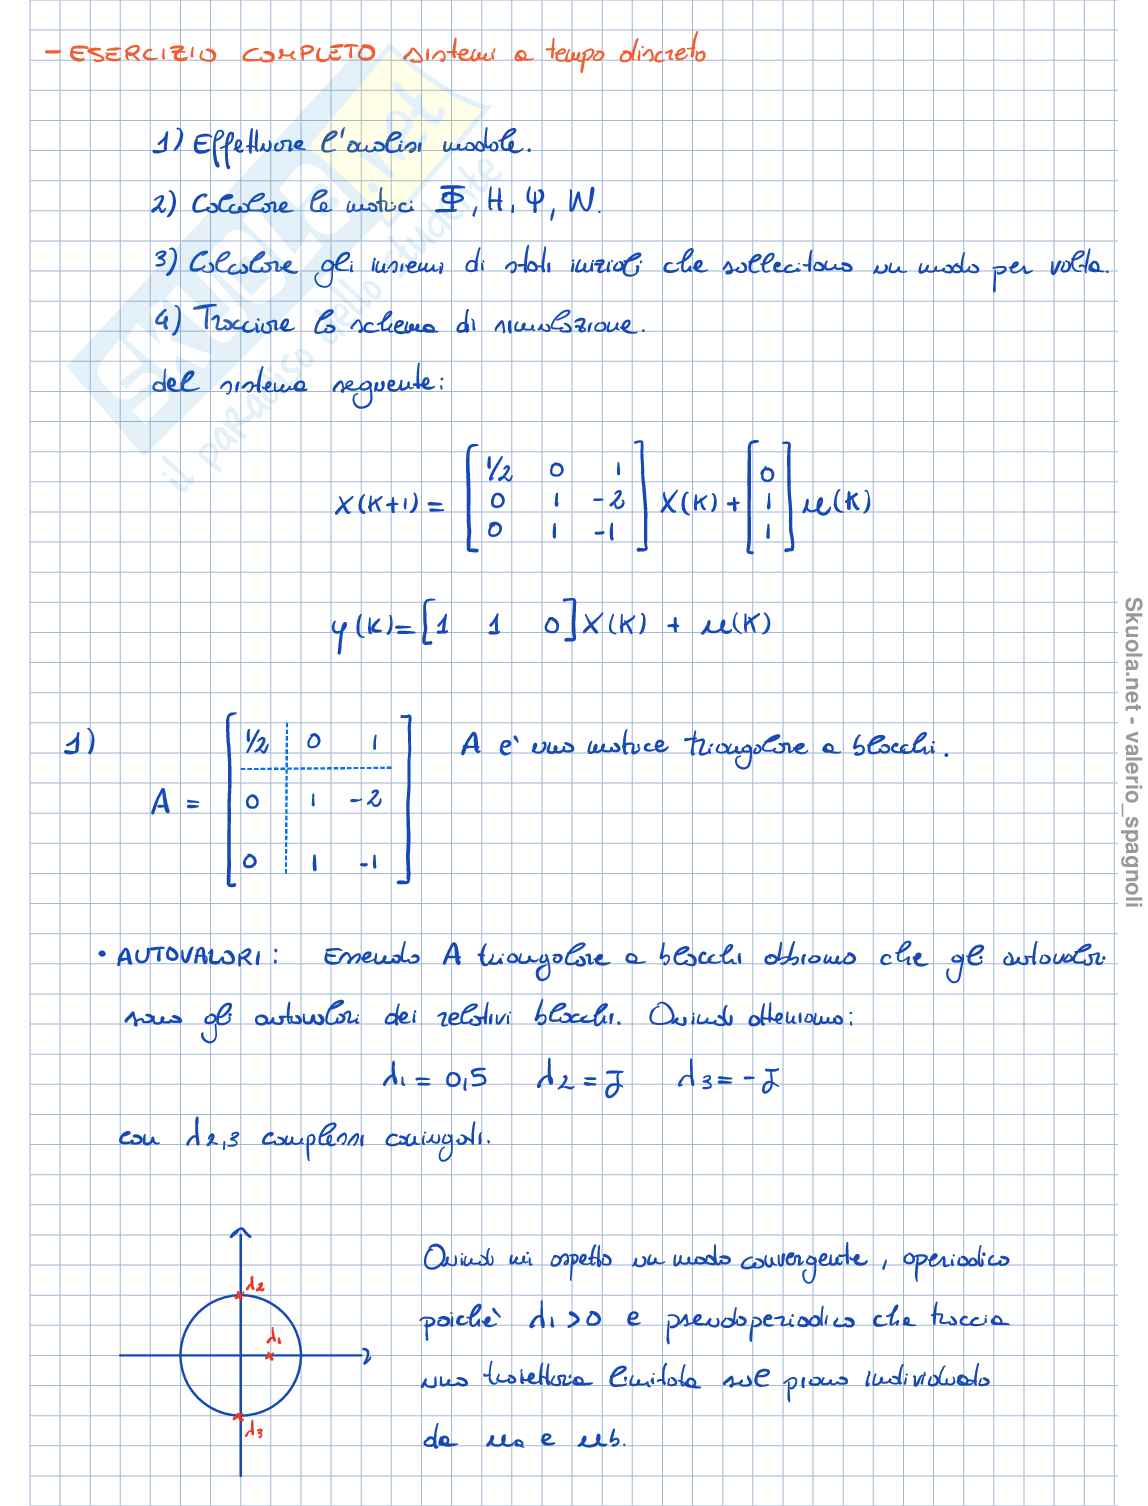 - ESERCIZIO COMPLETO sistemi a tempo discreto
1) Effettuare l'analisi modale.
2) Calcolare le matrici Φ, H, Ψ, W.
3) Calcolare gli insiemi di stati iniziali che sollecitano un modo per volta.
4) Tracciare lo schema di simulazione.
del sistema seguente:
x(k+1) = [1/2 0 1
0 1 -2
0 1 -1] x(k) + [0
1
1] u(k)
y(k) = [1 1 0] x(k) + u(k)
1) A = [1/2 0 1
0 1 -2
0 1 -1]
A e' una matrice triangolare a blocchi.
• AUTOVALORI: Essendo A triangolare a blocchi abbiamo che gli autovalori
sono gli autovalori dei relativi blocchi. Quindi otteniamo:
λ1 = 0,5 λ2 = J λ3 = -J
con λ2,3 complessi coniugati.
λ2
λ1
λ3
Quindi mi aspetto un modo convergente, aperiodico
poiche' λ1 > 0 e pseudoperiodico che traccia
una traiettoria limitata sul piano individuato
da ua e ub.
SKUOLA.net
il paradiso dello studente
Skuola.net - valerio_spagnoli